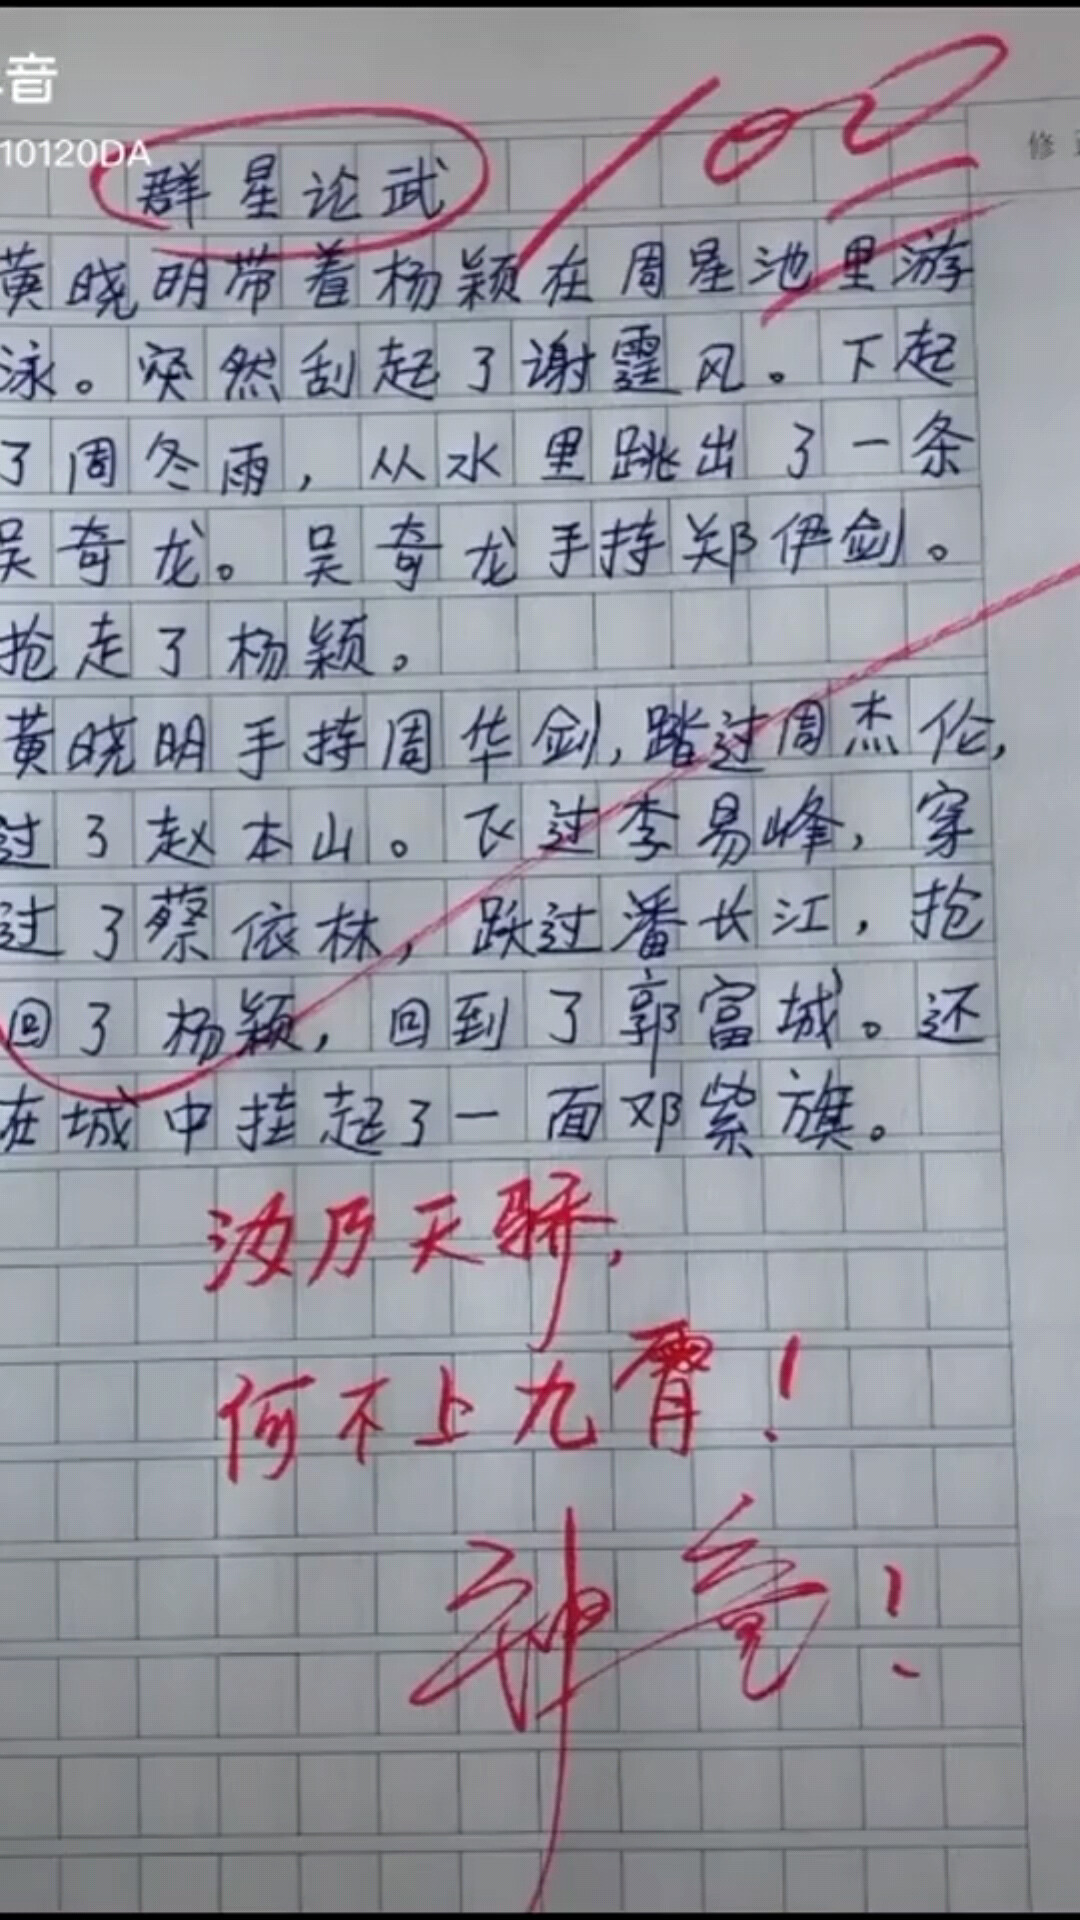 音
10120DA
修
102
群星论武
黄晓明带着杨颖在周星池里游
泳。突然刮起了谢霆风。下起
了周冬雨,从水里跳出了一条
吴奇龙。吴奇龙手持郑伊剑。
抢走了杨颖。
黄晓明手持周华剑,踏过周杰伦,
过了赵本山。飞过李易峰,穿
过了蔡依林,跃过潘长江,抢
回了杨颖,回到了郭富城。还
在城中挂起了一面邓紫旗。
汝乃天骄,
何不上九霄!
神童!